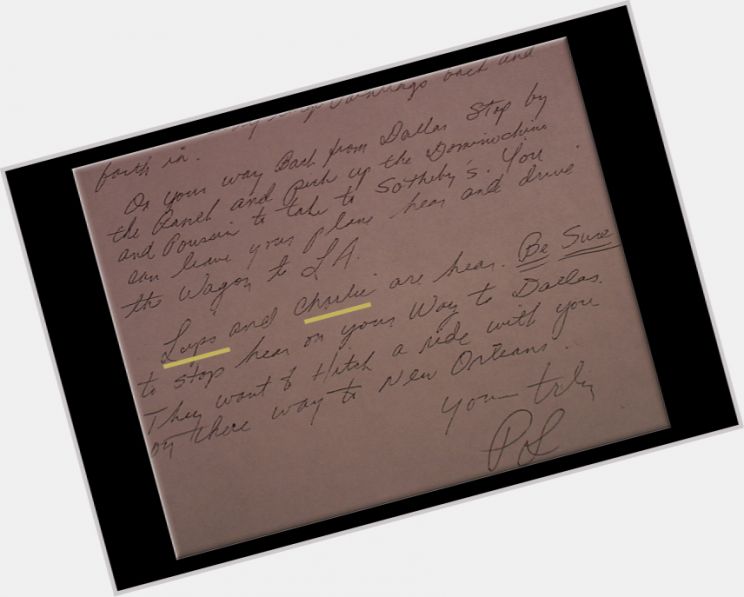 and
forth in.
On your way Back from Dallas Stop by
the Ranch and Pick up the Domenichino
and Poussin to take to Sotheby's. You
can leave your plane hear and drive
the Wagon to LA.
Lups and Charlie are hear. Be Sure
to stop hear on your Way to Dallas.
They want to Hitch a ride with you
on there way to New Orleans.
Yours truly